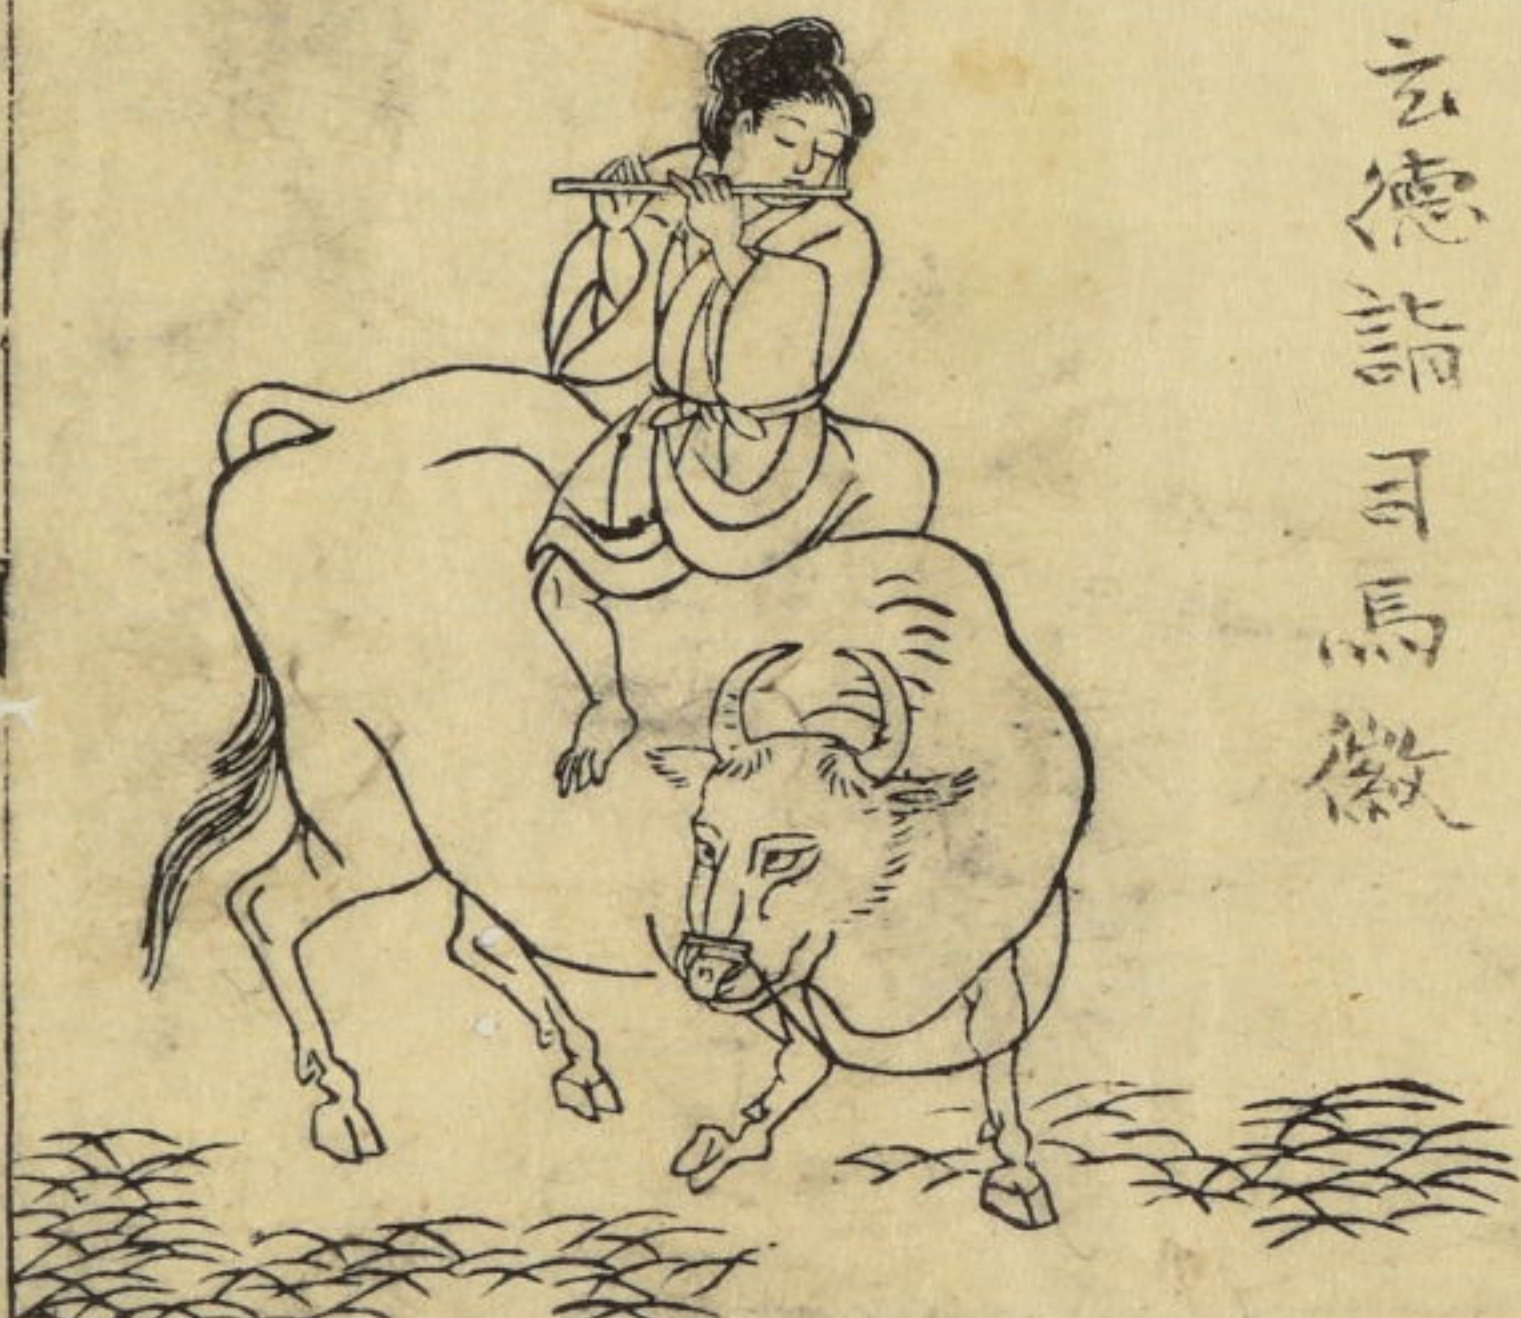 玄德詣司馬徽